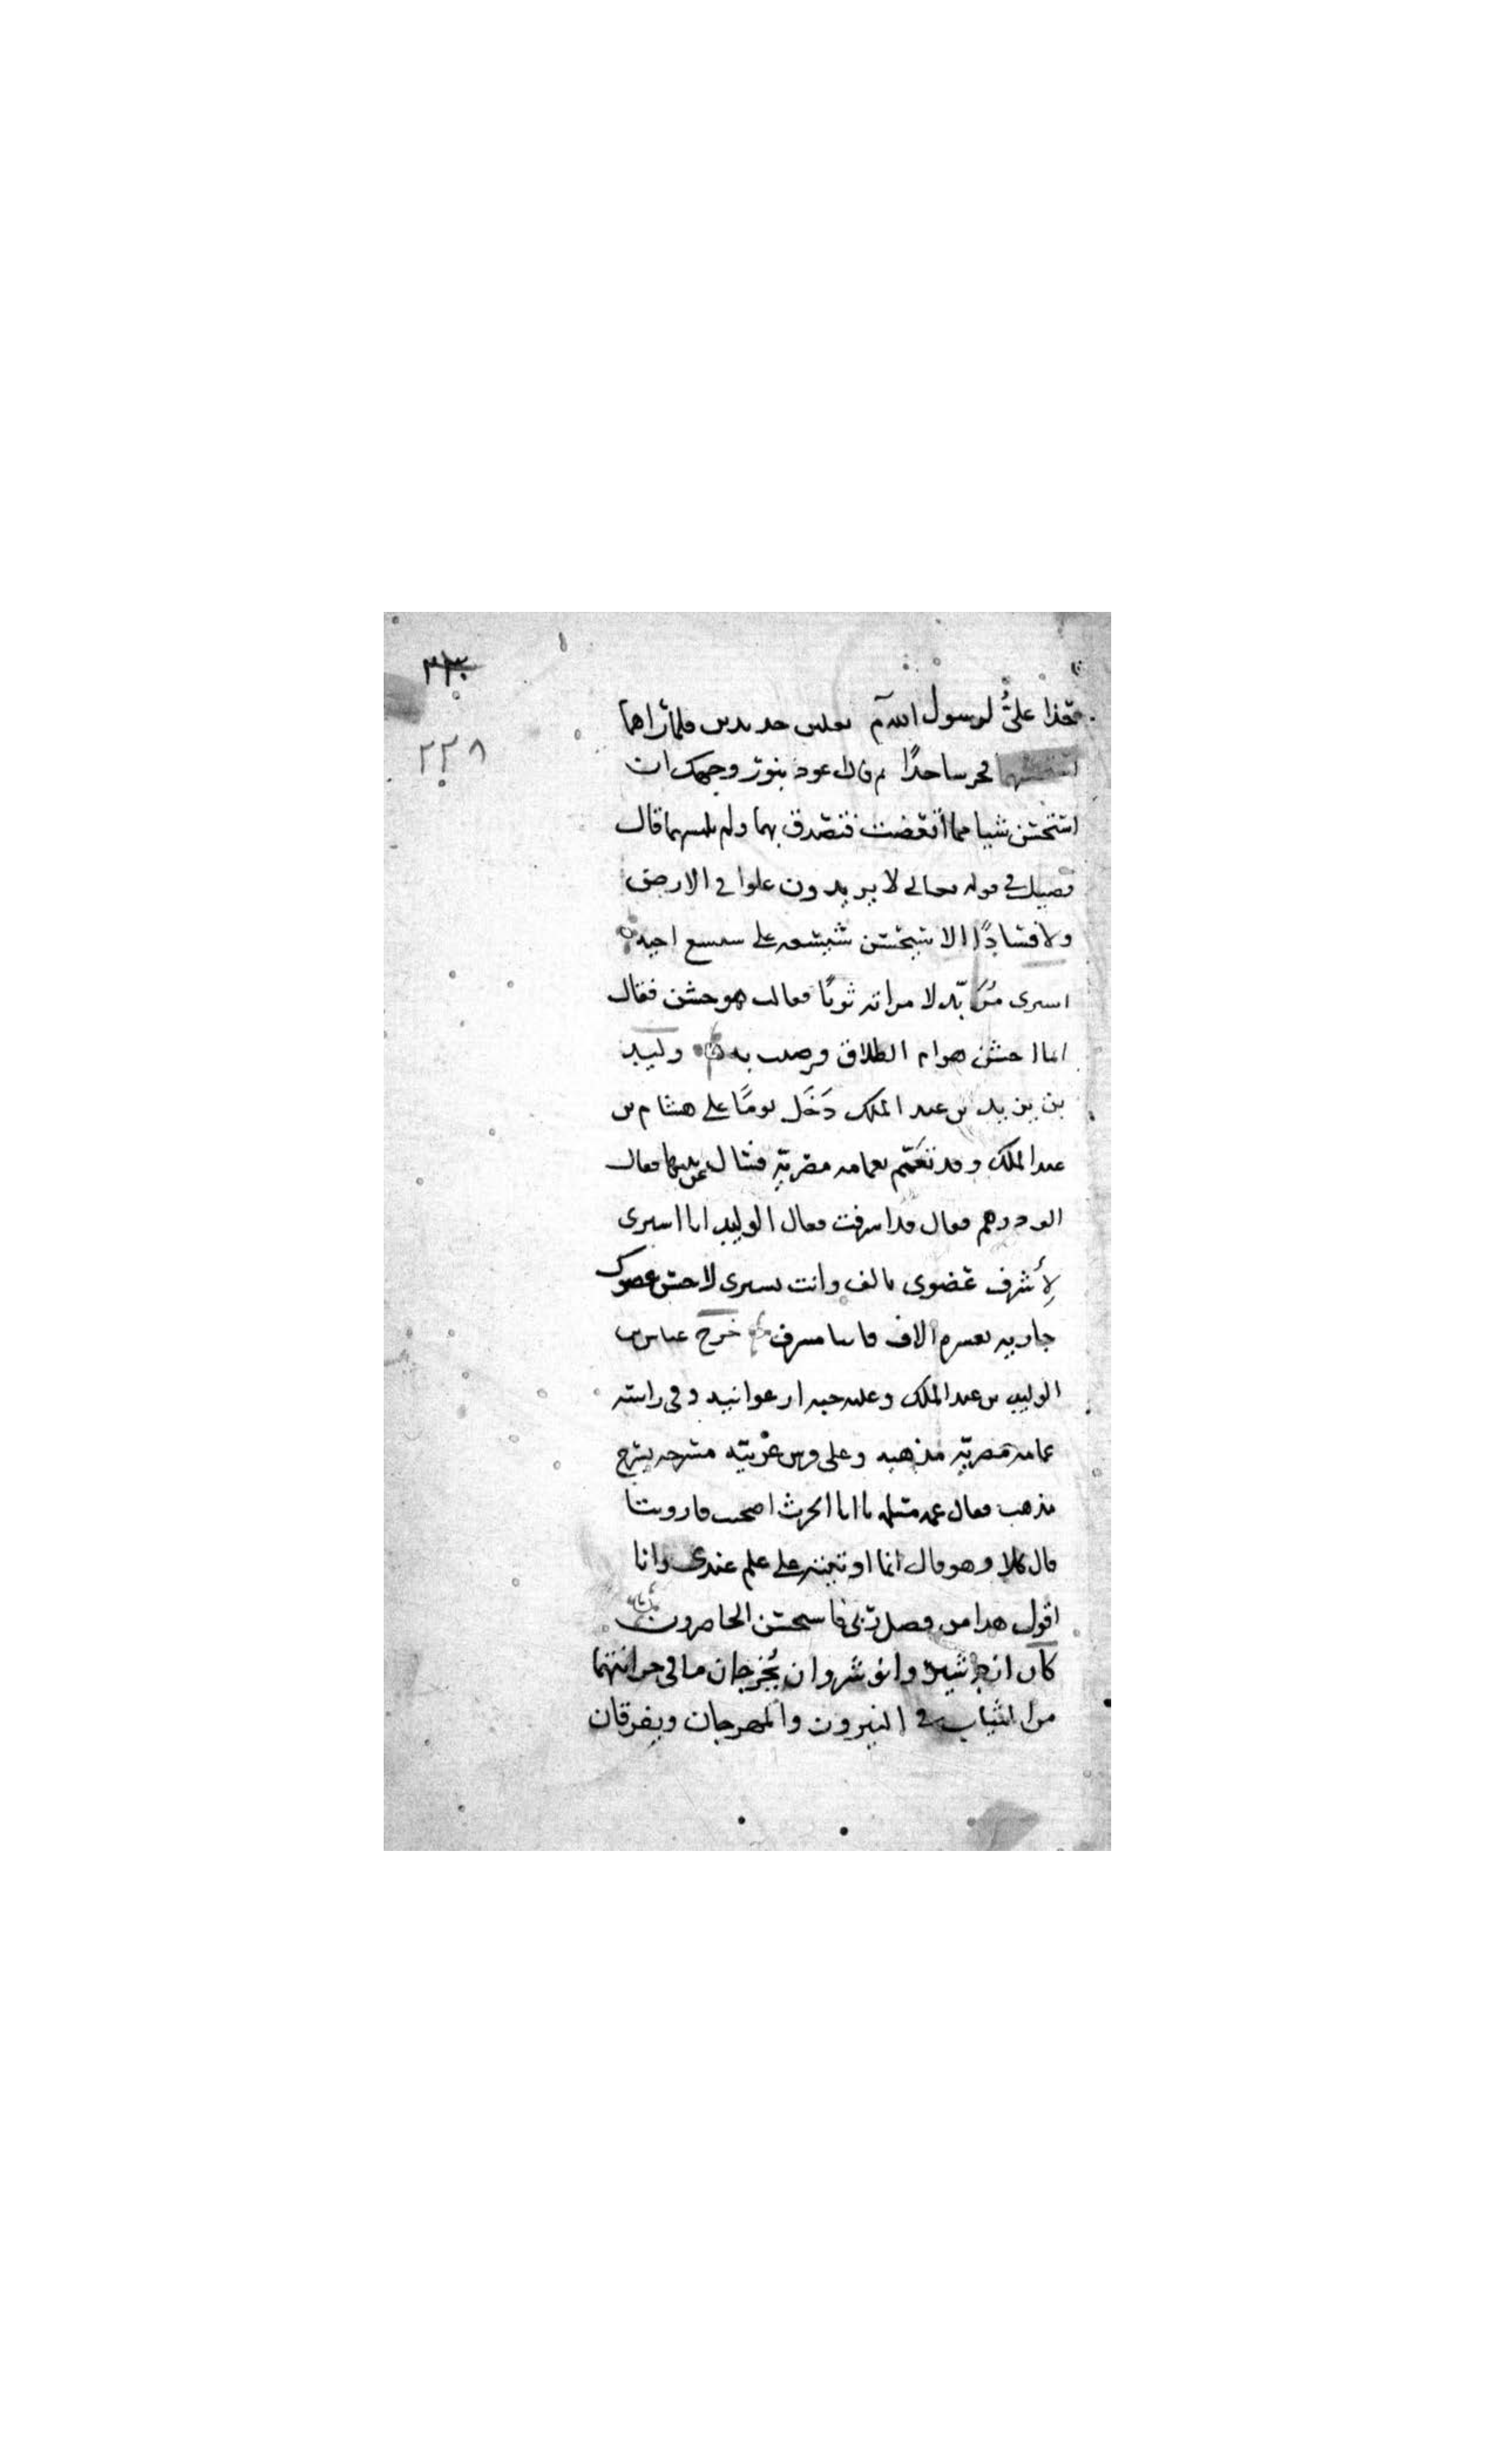 ٢٣٠
٢٢٨
فحذا علىُّ لرسول الله م نعلين جديدين فلما رآهما
استحسنهما فخر ساجدًا ثم قال اعوذ بنور وجهك ان
استحسن شيا مما ابغضت فتصدق بهما ولم يلبسهما قال
فضيل في قوله تعالى لا يريدون علوا في الارض
ولا فسادًا الا يستحسن شسعه على شسع اخيه
اشترى مُزَبّد لامراته ثوبًا فقالت هو حسن فقال
ايما احسن هو ام الطلاق فرضيت به وليد
بن يزيد بن عبد الملك دَخَل يومًا على هشام بن
عبد الملك وقد تعَمّم بعمامه مصريّه فسال عن ثمنها فقال
الف درهم فقال قد اسرفت فقال الوليد انا اشترى
لِأشرف عضوى بالف وانت تشترى لاخس عضوك
جاريه بعشره الاف فاينا مسرف خرج عباس بن
الوليد بن عبد الملك وعليه جبه ارجوانيه وفى راسه
عمامه مصريّه مذهبه وعلى فرس عربيّه مسرجه بسرج
مذهب فقال عمه مسلمه يا ابا الحرث اصحب قارونا
قال كلا وهو قال انما اوتيته على علم عندى وانا
اقول هذا من فضل ربى فاستحسن الحاضرون
كان اردشير وانوشروان يُخرجان ما فى خزانتهما
من الثياب في النيروز والمهرجان ويفرقان